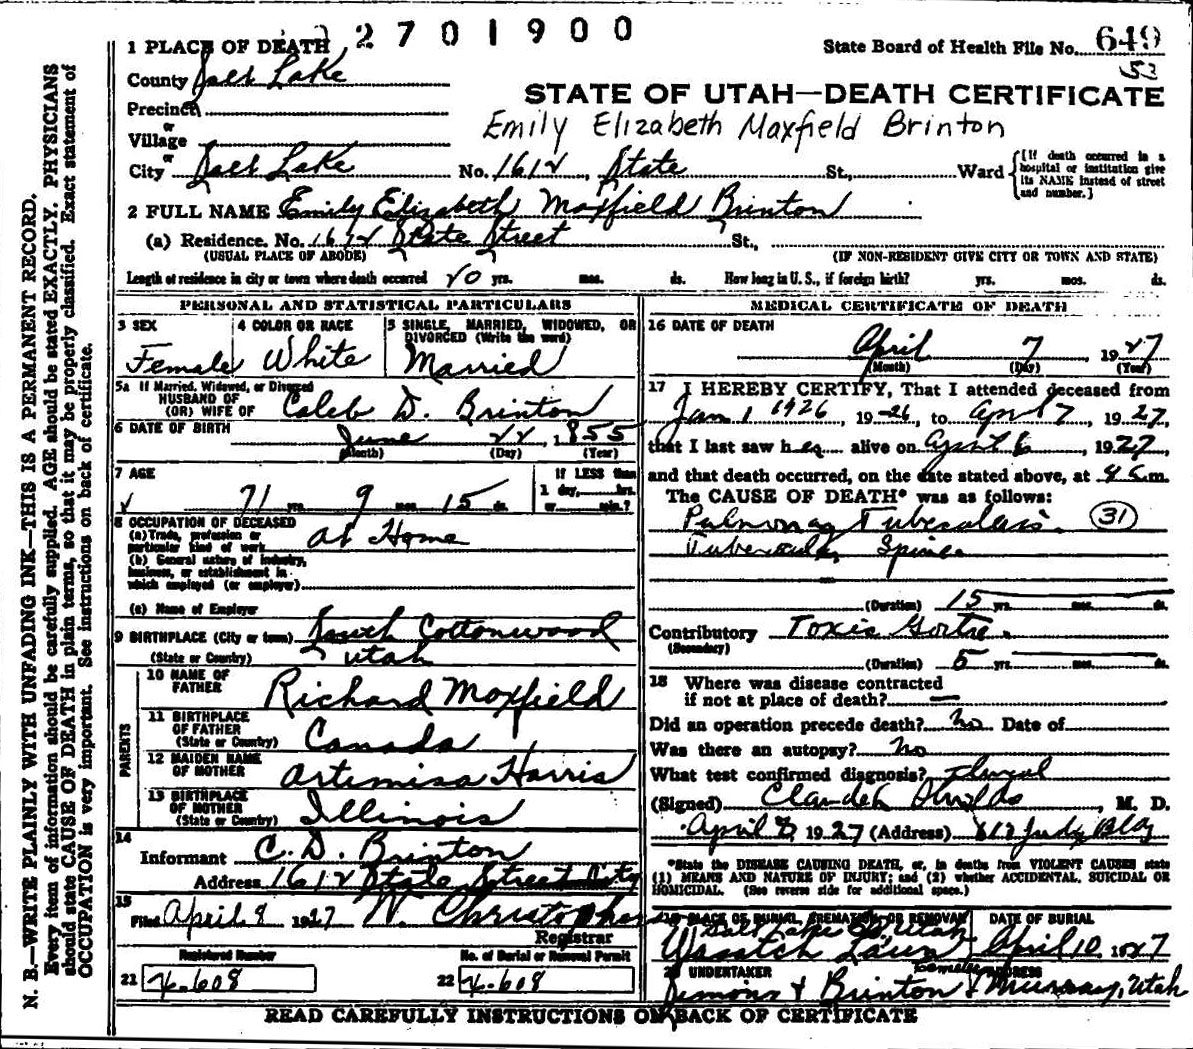 2701900
1 PLACE OF DEATH
State Board of Health File No. 649
53
County Salt Lake
STATE OF UTAH—DEATH CERTIFICATE
Precinct
or
Village
Emily Elizabeth Maxfield Brinton
or
City Salt Lake No. 1612, State St., Ward
[If death occurred in a hospital or institution give its NAME instead of street and number.]
2 FULL NAME Emily Elizabeth Maxfield Brinton
(a) Residence. No. 1612 State Street St.,
(USUAL PLACE OF ABODE) (IF NON-RESIDENT GIVE CITY OR TOWN AND STATE)
Length of residence in city or town where death occurred 20 yrs. mos. ds. How long in U. S., if foreign birth? yrs. mos. ds.
PERSONAL AND STATISTICAL PARTICULARS
3 SEX 4 COLOR OR RACE 5 SINGLE, MARRIED, WIDOWED, OR DIVORCED (Write the word)
Female White Married
5a If Married, Widowed, or Divorced
HUSBAND OF
(OR) WIFE OF Caleb D. Brinton
6 DATE OF BIRTH June 22, 1855
(Month) (Day) (Year)
7 AGE If LESS than
71 yrs. 9 mos. 15 ds. 1 day, hrs. or min.?
8 OCCUPATION OF DECEASED
(a) Trade, profession or particular kind of work At Home
(b) General nature of industry, business, or establishment in which employed (or employer)
(c) Name of Employer
9 BIRTHPLACE (City or town) South Cottonwood
(State or Country) Utah
PARENTS
10 NAME OF FATHER Richard Maxfield
11 BIRTHPLACE OF FATHER (State or Country) Canada
12 MAIDEN NAME OF MOTHER Artemisa Harris
13 BIRTHPLACE OF MOTHER (State or Country) Illinois
14
Informant C. D. Brinton
Address 1612 State Street City
15
Filed April 8 1927 W Christopherson
Registrar
Registered Number No. of Burial or Removal Permit
21 4-608 22 4-608
MEDICAL CERTIFICATE OF DEATH
16 DATE OF DEATH
April 7, 1927
(Month) (Day) (Year)
17 I HEREBY CERTIFY, That I attended deceased from
Jan 1 1926, 19 26, to April 7 1927
that I last saw her alive on April 6, 1927,
and that death occurred, on the date stated above, at m.
The CAUSE OF DEATH* was as follows:
Pulmonary Tuberculosis. 31
Tubercular Spine
(Duration) 15 yrs. mos. ds.
Contributory Toxic Goitre.
(Secondary)
(Duration) 5 yrs. mos. ds.
18 Where was disease contracted
if not at place of death? —
Did an operation precede death? No Date of
Was there an autopsy? No
What test confirmed diagnosis?
(Signed) M. D.
April 8, 1927 (Address) 612 Judge Bldg
*State the DISEASE CAUSING DEATH, or, in deaths from VIOLENT CAUSES state
(1) MEANS AND NATURE OF INJURY; and (2) whether ACCIDENTAL, SUICIDAL OR
HOMICIDAL. (See reverse side for additional space.)
19 PLACE OF BURIAL, CREMATION OR REMOVAL DATE OF BURIAL
Salt Lake Co Utah
Wasatch Lawn April 10 1927
20 UNDERTAKER ADDRESS
Brinton Murray, Utah
READ CAREFULLY INSTRUCTIONS ON BACK OF CERTIFICATE
N. B.—WRITE PLAINLY WITH UNFADING INK—THIS IS A PERMANENT RECORD.
Every item of information should be carefully supplied. AGE should be stated EXACTLY. PHYSICIANS
should state CAUSE OF DEATH in plain terms, so that it may be properly classified. Exact statement of
OCCUPATION is very important. See instructions on back of certificate.